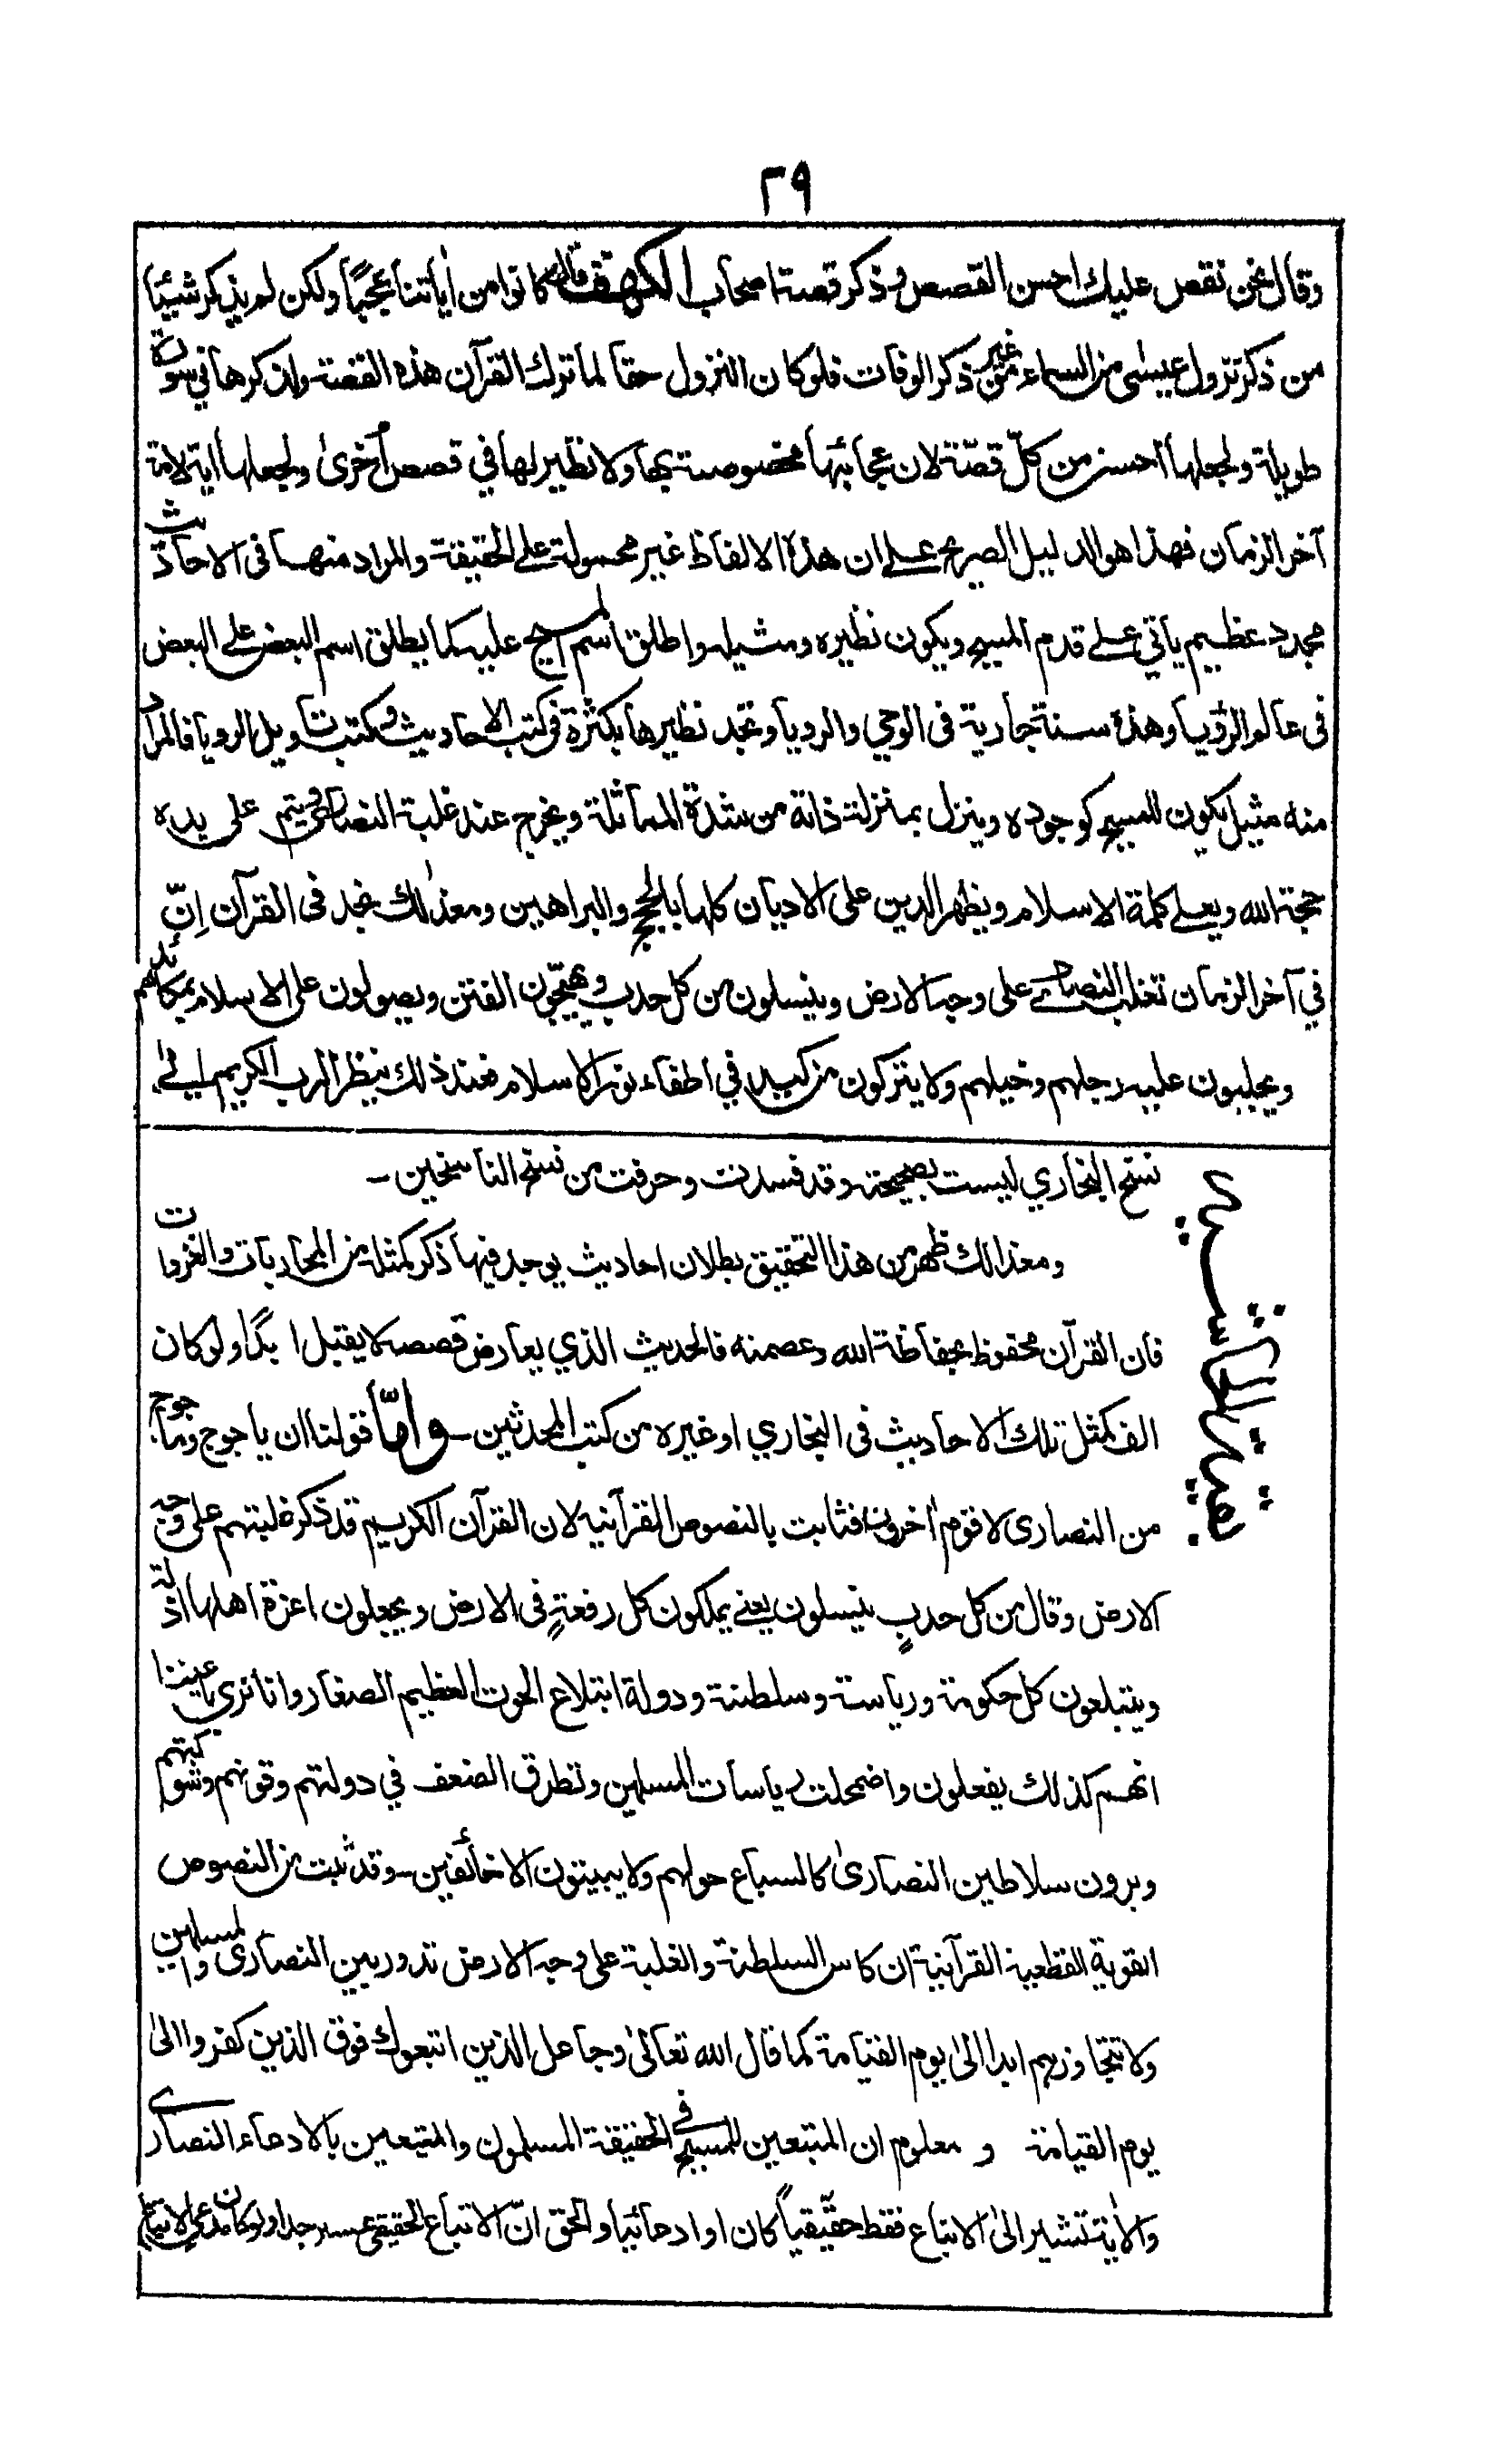 ٢٩
وقال نحن نقص عليك احسن القصص وذكر قصة اصحاب الكهف وقال كانوا من اٰياتنا عجبًا ولكن لم يذكر شيئًا
من ذكر نزول عيسٰى من السماء من غير ذكر الوفات فلو كان النزول حقا لما ترك القرآن هذه القصة ولذكرها في سورة
طويلة ولجعلها احسن من كلّ قصّة لان عجائبها مخصوصة بها ولا نظير لها في قصص أخرىٰ ولجعلها اية لامة
آخر الزمان فهذا هو الدليل الصريح على ان هذه الالفاظ غير محمولة على الحقيقة والمراد منها فى الاحاديث
مجدد عظيم ياتي على قدم المسيح ويكون نظيره ومثيله واطلق اسم المسيح عليه كما يطلق اسم البعض على البعض
فى عالم الرؤيا وهذه سنة جارية فى الوحي والرديا وتجد نظيرها بكثرة فى كتب الاحاديث وكتب تاويل الرويا فالمراد
منه مثيل يكون للمسيح كوجوده وينزل بمنزلة ذاته من شدة المماثلة ويخرج عند غلبة النصارى ويتم على يده
حجة الله ويعلى كلمة الاسلام ويظهر الدين على الاديان كلها بالحجج والبراهين ومعذٰلك نجد فى القرآن اِنّ
في آخر الزمان تغلب النصارى على وجه الارض وينسلون من كل حدب ويهيّجون الفتن ويصولون على الاسلام بمكائدهم
ويجلبون عليه رجلهم وخيلهم ولا يتركون من كيد في اطفاء نور الاسلام فعند ذلك ينظر الرب الكريم الىٰ
بقية الحاشية
نسخ البخاري ليست بصحيحة وقد فسدت وحرفت من نسخ الناسخين -
ومعذالك ظهر من هذا التحقيق بطلان احاديث يوجد فيها ذكر كمثله من المحاربات والغزوات
فان القرآن محفوظ بحفاظة الله وعصمته فالحديث الذي يعارض قصصه لا يقبل ابدًا ولو كان
الف كمثل تلك الاحاديث فى البخاري او غيره من كتب المحدثين - وامّا قولنا ان ياجوج وماجوج
من النصارى لا قوم اٰخرون فثابت بالنصوص القرآنيه لان القرآن الكريم قد ذكر غلبتهم على وجه
الارض وقال من كل حدبٍ ينسلون يعنى يملكون كل رفعةٍ فى الارض ويجعلون اعزة اهلها اذلة
ويبتلعون كل حكومة ورياسة وسلطنة ودولة ابتلاع الحوت العظيم الصغار وانا نرى باعيننا
انهم كذلك يفعلون واضمحلت رياسات المسلمين وتطرق الضعف في دولتهم وقوتهم وشوكتهم
ويرون سلاطين النصارىٰ كالسباع حولهم ولا يبيتون الا خائفين - وقد ثبت من النصوص
القوية القطعية القرآنية ان كاس السلطنة والغلبة على وجه الارض تدور بين النصارى والمسلمين
ولا تتجاوزهم ابدا الىٰ يوم القيامة كما قال الله تعالىٰ وجاعل الذين اتبعوك فوق الذين كفروا الىٰ
يوم القيامة و معلوم ان المتبعين للمسيح فى الحقيقة المسلمون والمتبعين بالادعاء النصارى
والاٰية تشير الىٰ الاتباع فقط حقيقيًا كان او ادعائيا والحق انّ الاتباع الحقيقى عسير جدا ولو كان مدعى الاتباع